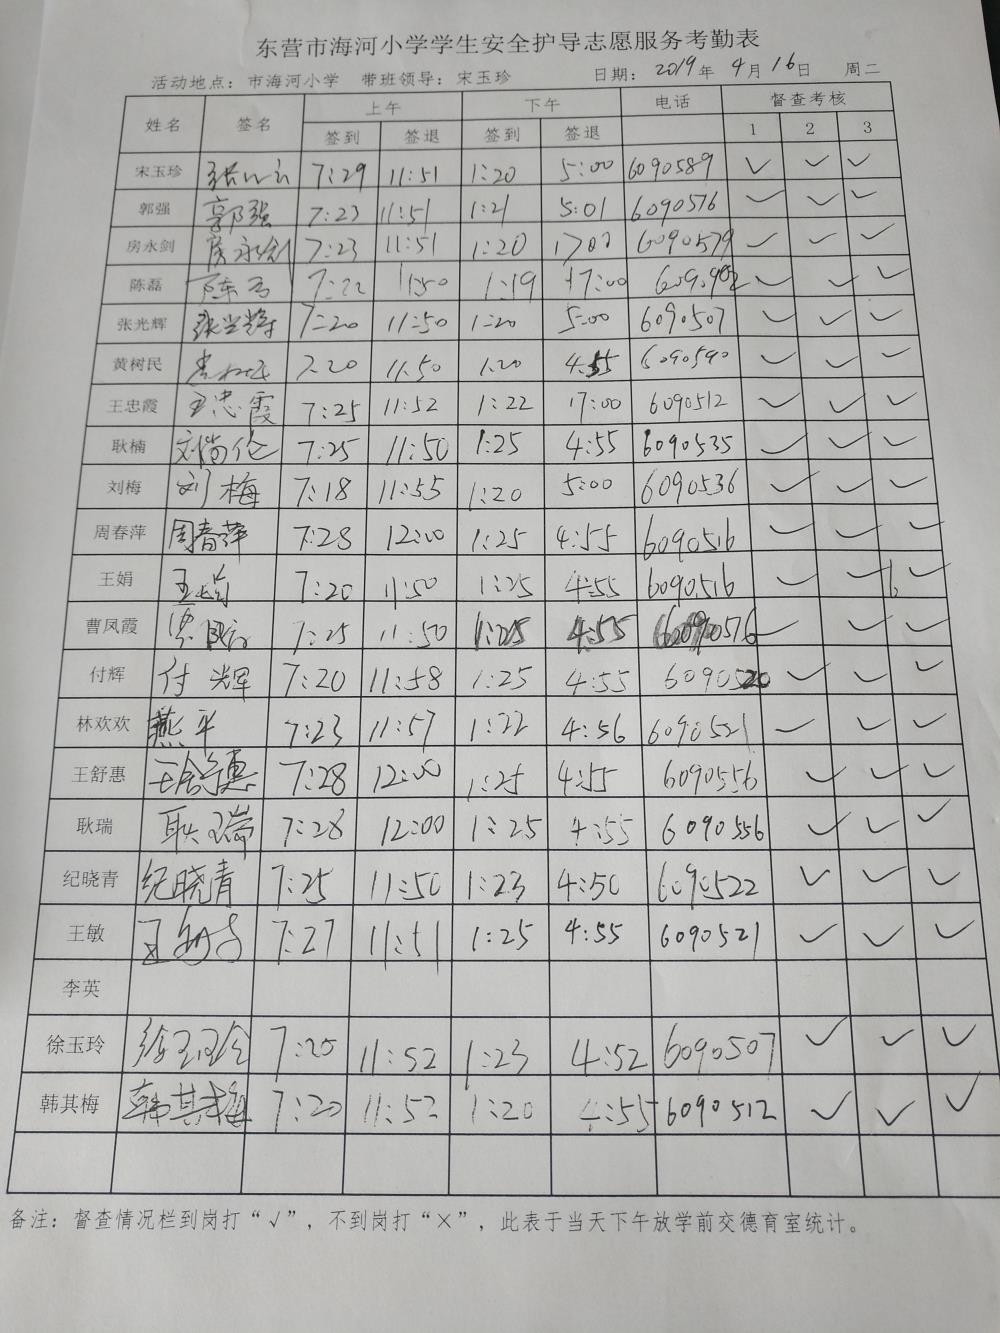 东营市海河小学学生安全护导志愿服务考勤表
活动地点：市海河小学 带班领导：宋玉珍 日期：2019年 4月16日 周二
姓名 签名 上午 下午 电话 督查考核
签到 签退 签到 签退 1 2 3
宋玉珍 7:29 11:51 1:20 5:00 6090589 ✓ ✓ ✓
郭强 郭强 7:23 11:51 1:21 5:01 6090576 ✓ ✓ ✓
房永剑 房永剑 7:23 11:51 1:20 6090579 ✓ ✓ ✓
陈磊 7:22 11:50 1:19 17:00 ✓ ✓ ✓
张光辉 张光辉 7:20 11:50 1:20 5:00 6090507 ✓ ✓ ✓
黄树民 7:20 11:50 1:20 4:55 6090590 ✓ ✓ ✓
王忠霞 王忠霞 7:25 11:52 1:22 17:00 6090512 ✓ ✓ ✓
耿楠 刘尚伦 7:25 11:50 1:25 4:55 6090535 ✓ ✓ ✓
刘梅 刘梅 7:18 11:55 1:20 5:00 6090536 ✓ ✓ ✓
周春萍 周春萍 7:28 12:00 1:25 4:55 6090516 ✓ ✓ ✓
王娟 王娟 7:20 11:50 1:25 4:55 6090516 ✓ ✓ ✓
曹凤霞 7:25 11:50 1:25 4:55 6090576 ✓ ✓ ✓
付辉 付辉 7:20 11:58 1:25 4:55 6090520 ✓ ✓ ✓
林欢欢 燕平 7:23 11:57 1:22 4:56 6090521 ✓ ✓ ✓
王舒惠 王舒惠 7:28 12:00 1:25 4:55 6090556 ✓ ✓ ✓
耿瑞 耿瑞 7:28 12:00 1:25 4:55 6090556 ✓ ✓ ✓
纪晓青 纪晓青 7:25 11:50 1:23 4:50 6090522 ✓ ✓ ✓
王敏 王敏 7:27 11:51 1:25 4:55 6090521 ✓ ✓ ✓
李英
徐玉玲 徐玉玲 7:20 11:52 1:23 4:52 6090507 ✓ ✓ ✓
韩其梅 韩其梅 7:20 11:52 1:20 4:55 6090512 ✓ ✓ ✓
备注：督查情况栏到岗打“√”，不到岗打“×”，此表于当天下午放学前交德育室统计。